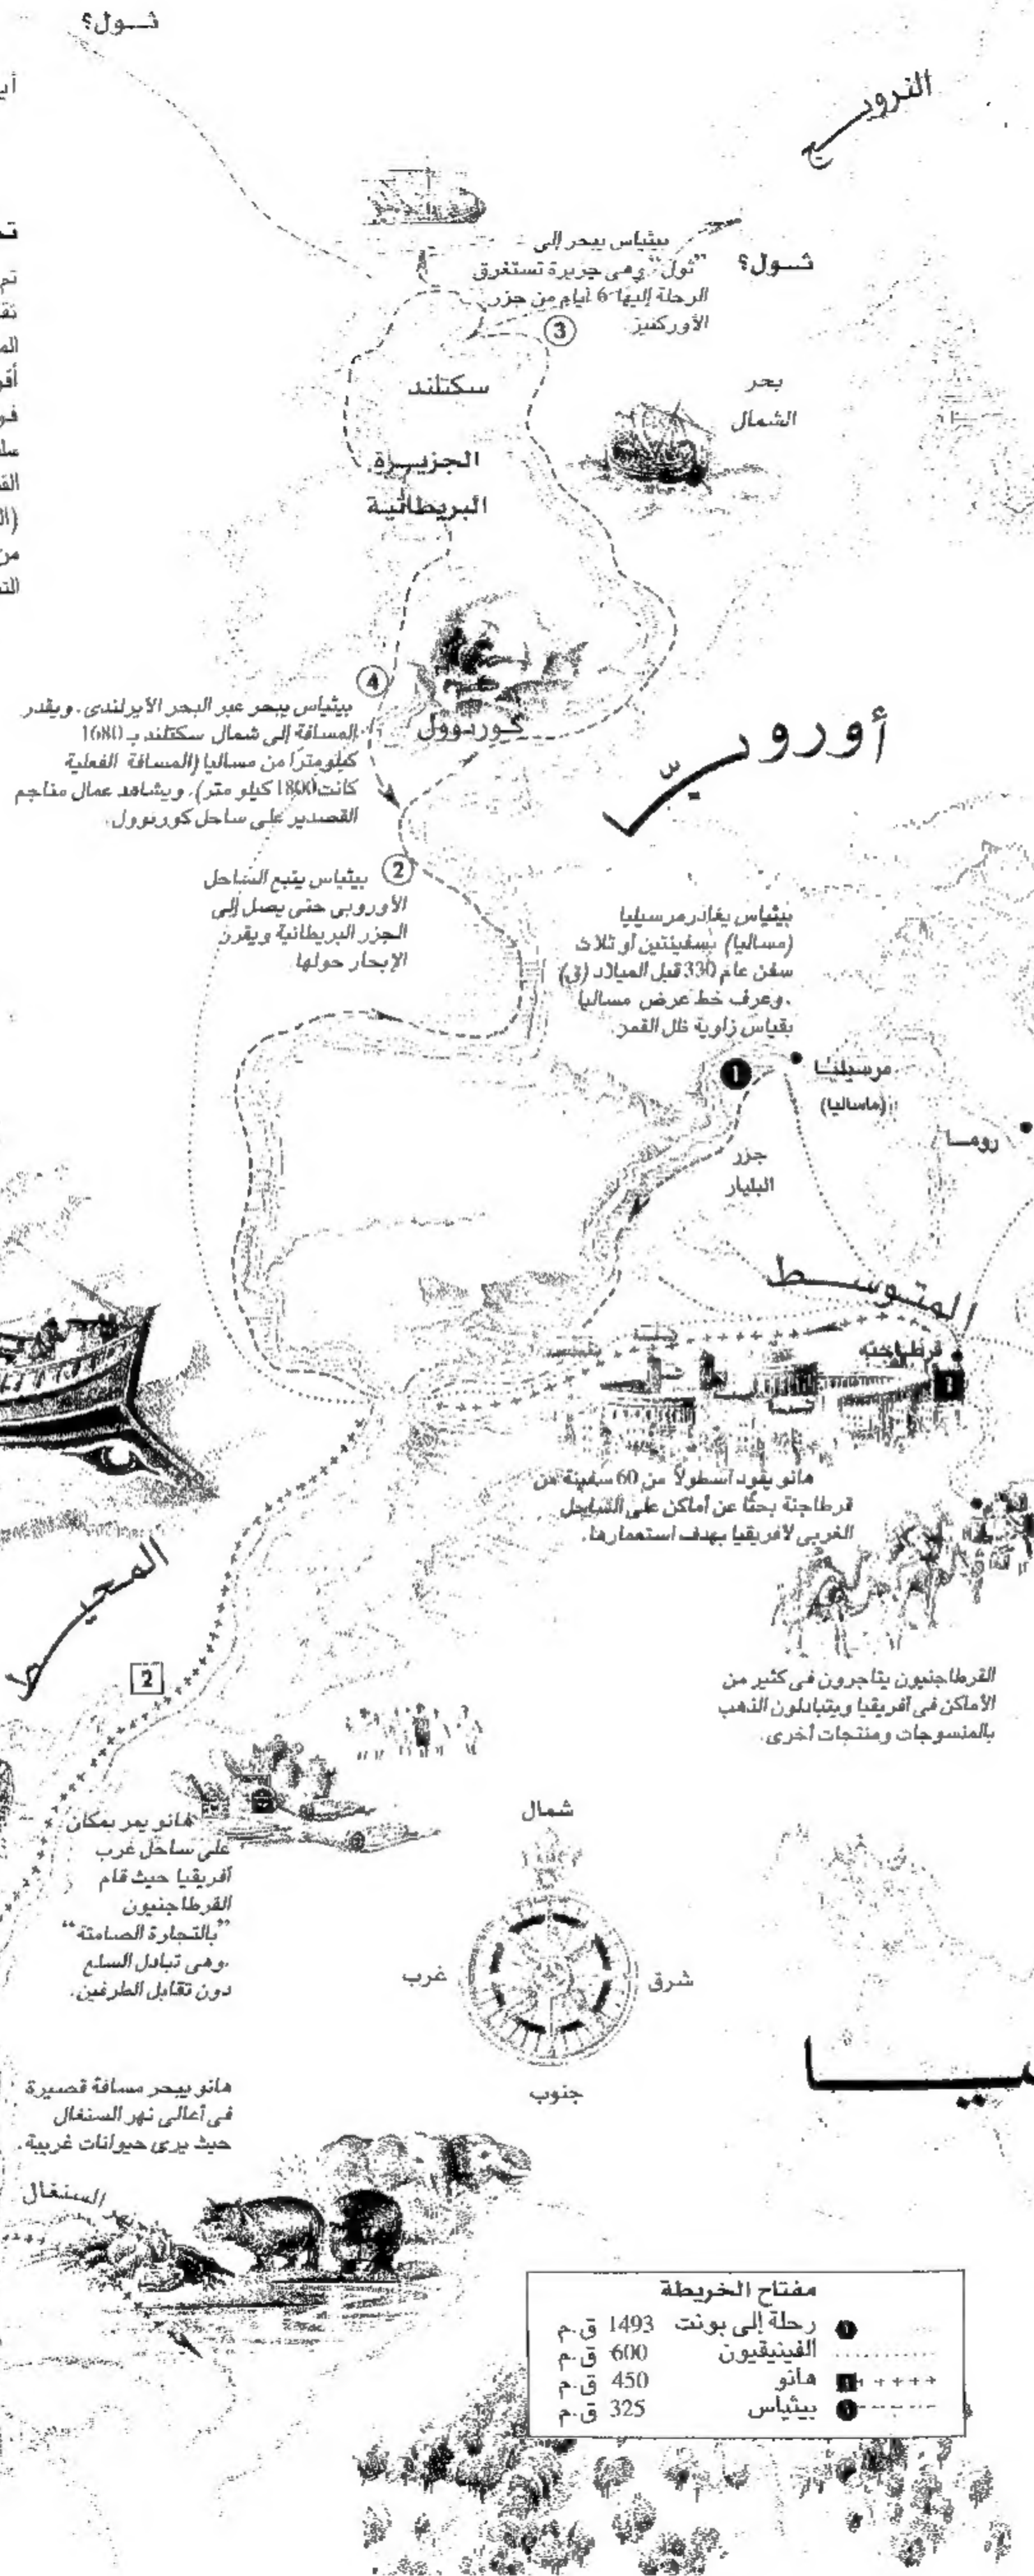 ثـول؟
النرويـج
بيثياس يبحر إلى
"ثول" وهى جزيرة تستغرق
الرحلة إليها 6 أيام من جزر
الأوركنيز.
ثـول؟
3
سكتلند
بحر
الشمال
الجزيـرة
البريطانية
4
بيثياس يبحر عبر البحر الأيرلندى. ويقدر
المسافة إلى شمال سكتلند بـ 1680
كيلومتراً من مساليا (المسافة الفعلية
كانت 1800 كيلو متر). ويشاهد عمال مناجم
القصدير على ساحل كورنوول.
كـورنـوول
أوروبـّـا
2
بيثياس يتبع الساحل
الأوروبى حتى يصل إلى
الجزر البريطانية ويقرن
الإبحار حولها.
بيثياس يغادر مرسيليا
(مساليا) بسفينتين أو ثلاث
سفن عام 330 قبل الميلاد (ق)
. وعرف خط عرض مساليا
بقياس زاوية ظل القمر.
1
مرسيليـا
(ماساليا)
رومـا
جزر
البليار
المتـوسـط
قرطاجنة
1
هانو يقود أسطولاً من 60 سفينة من
قرطاجنة بحثًا عن أماكن على الساحل
الغربى لأفريقيا بهدف استعمارها.
المحيـط
2
القرطاجنيون يتاجرون فى كثير من
الأماكن فى أفريقيا ويتبادلون الذهب
بالمنسوجات ومنتجات أخرى.
هانو يمر بمكان
على ساحل غرب
أفريقيا حيث قام
القرطاجنيون
"بالتجارة الصامتة"
.وهى تبادل السلع
دون تقابل الطرفين.
شمال
غرب
شرق
جنوب
هانو يبحر مسافة قصيرة
فى أعالى نهر السنغال
حيث يرى حيوانات غريبة.
نهر السنغال
مفتاح الخريطة
رحلة إلى بونت 1493 ق.م
الفينيقيون 600 ق.م
هانو 450 ق.م
بيثياس 325 ق.م